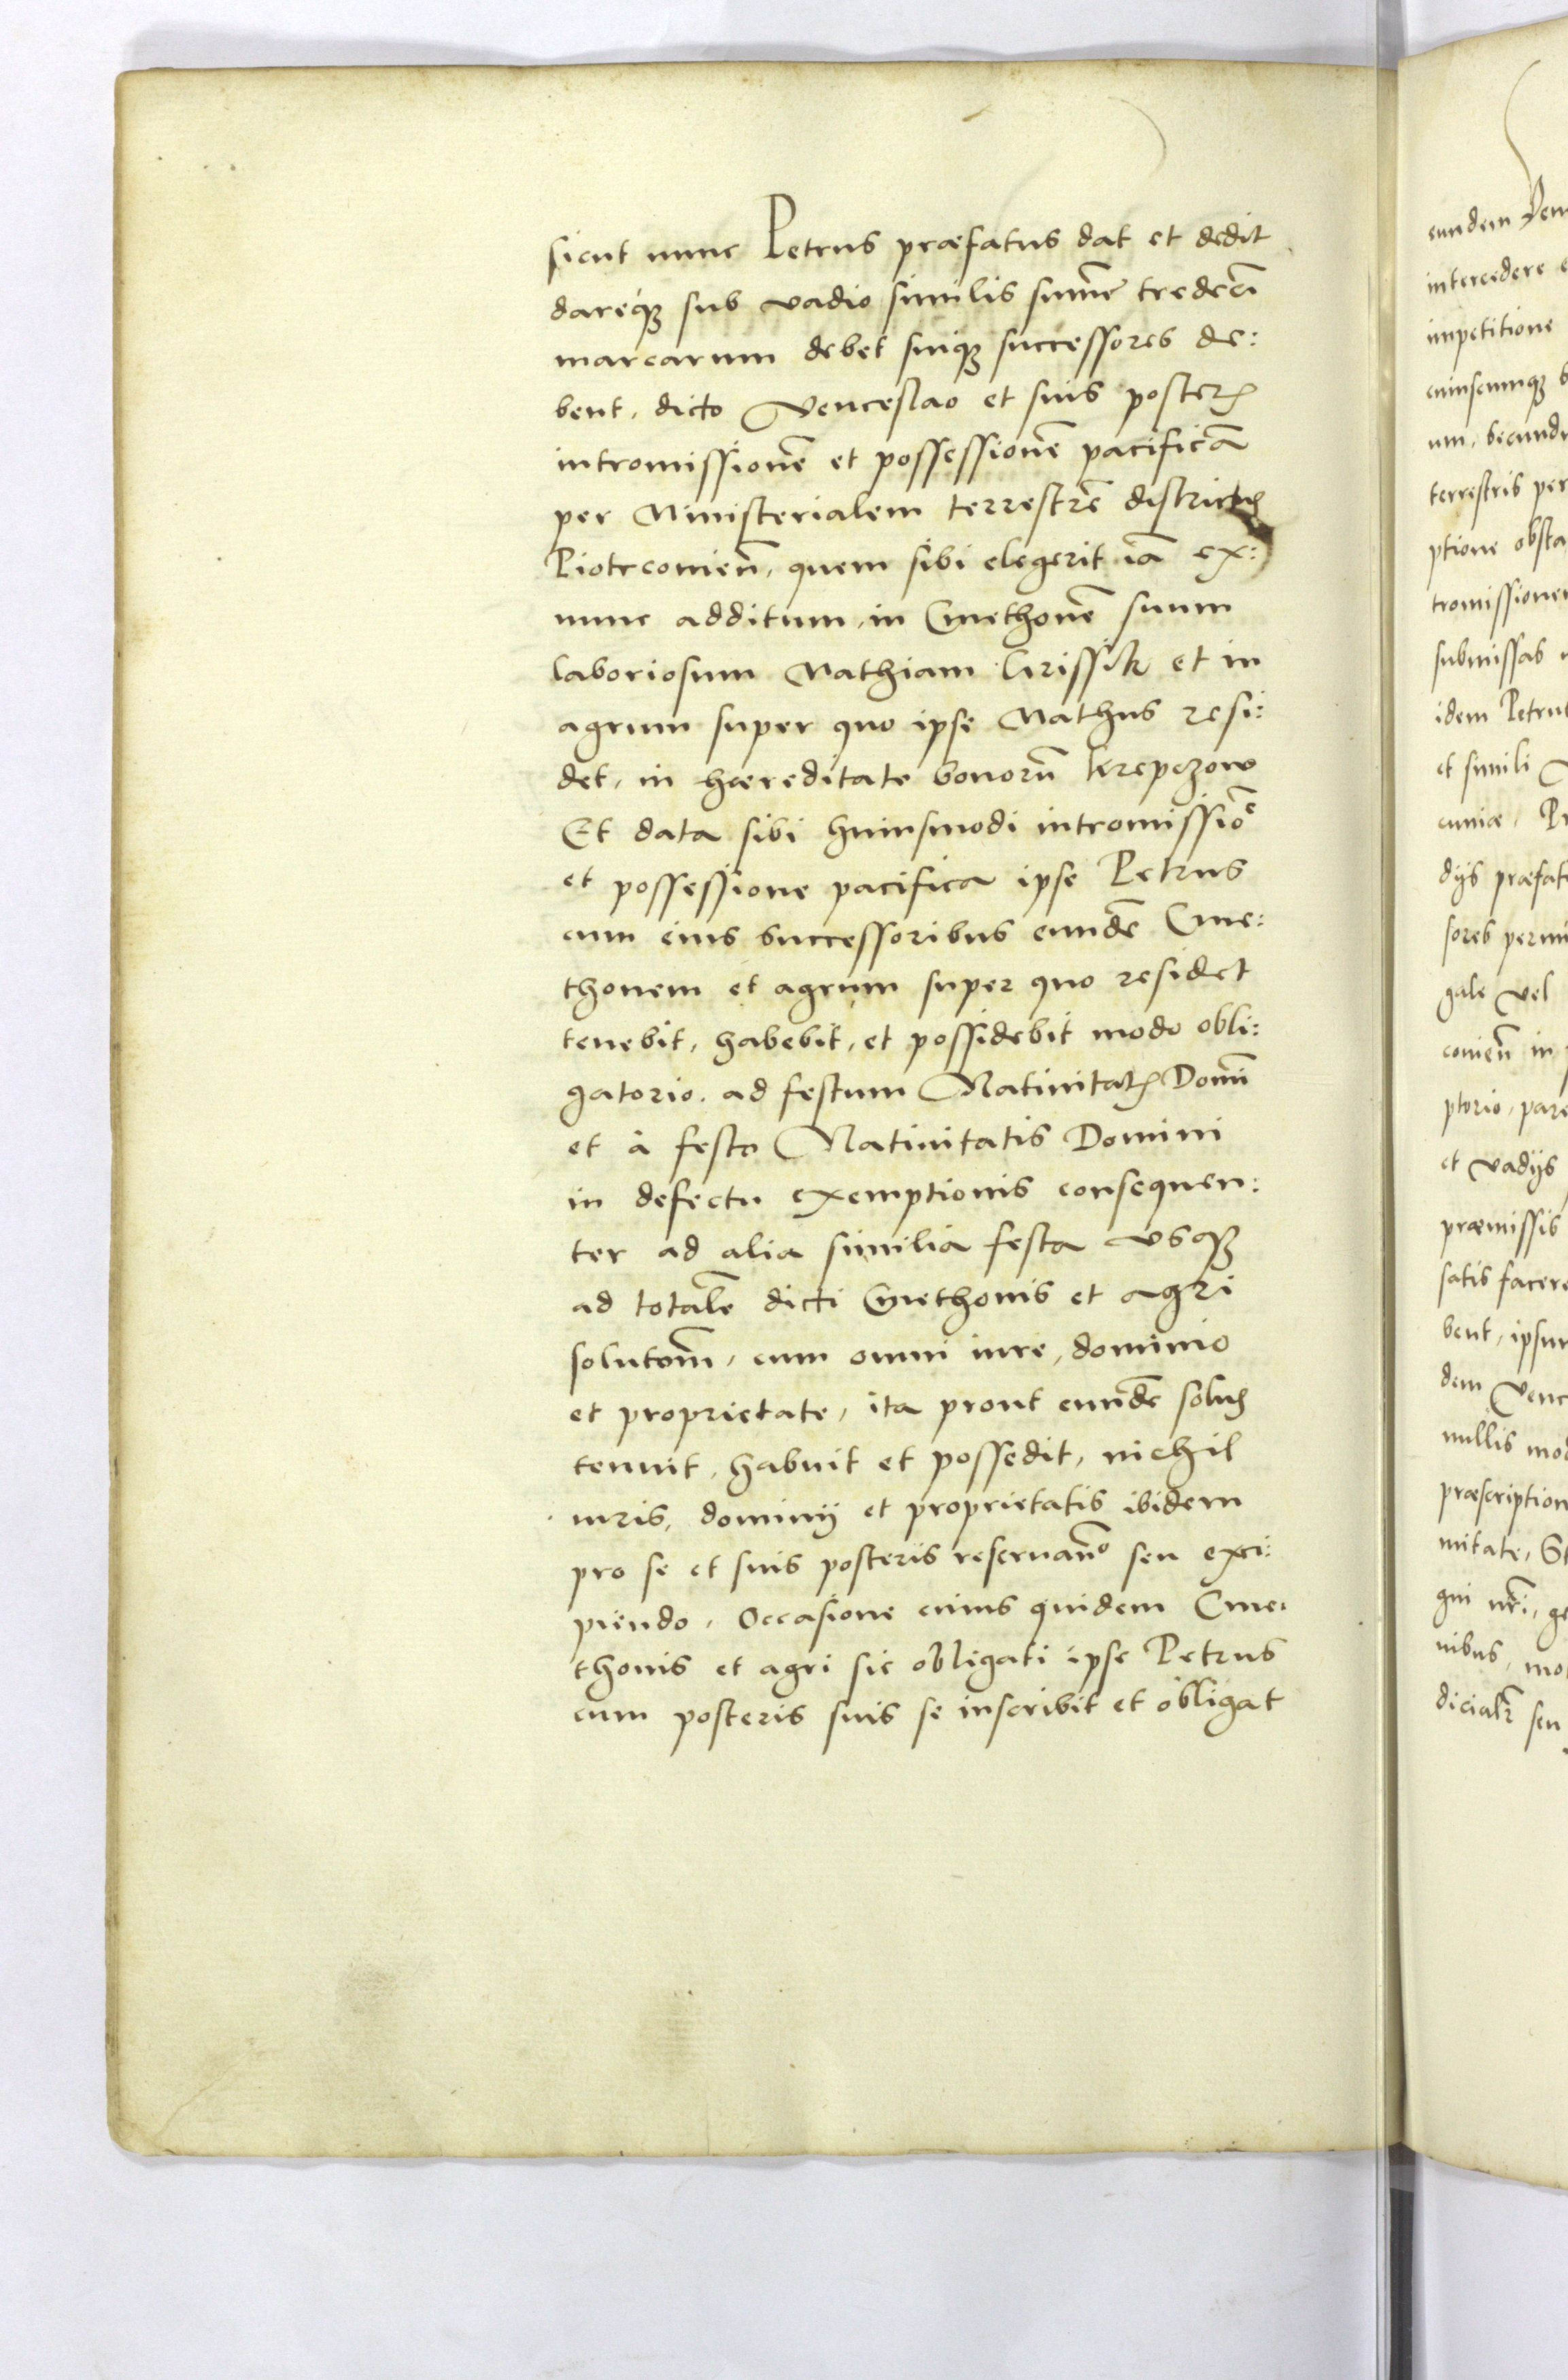 sicut nunc Petrus præfatus dat et dedit
dareq; sub vadio similis sum̃e tredecĩ
marcarum debet suiq; successores de:
bent, dicto Venceslao et suis posterꝭ
intromissionẽ et possessionẽ pacificã
per Ministerialem terrestrẽ districtꝰ
Piotrconieñ, quem sibi elegerit iã ex:
nunc additum, in Cmethonẽ suum
laboriosum Mathiam Crissik et in
agrum super quo ipse Mathus resi:
det, in hæreditate bonorũ Krepczow
Et data sibi huiusmodi intromissiõe
et possessione pacifica ipse Petrus
cum eius successoribus eundẽ Cme:
thonem et agrum super quo residet
tenebit, habebit, et possidebit modo obli:
gatorio. ad festum Natiuitatꝭ Domĩ
et à festo Natiuitatis Domini
in defectu exemptionis consequen:
ter ad alia similia festa vsq;
ad totalẽ dicti Cmethonis et agri
solutom̃, cum omni iure, dominio
et proprietate, ita prout eundẽ solus
tenuit, habuit et possedit, nichil
iuris, dominij et proprietatis ibidem
pro se et suis posteris reseruañº seu exci:
piendo. Occasione cuius quidem Cme:
thonis et agri sic obligati ipse Petrus
cum posteris suis se inscribit et obligat
eundem
intercedere
impetitione
cuiuscumq;
um, secund
terrestris per
ptione obsta
tromissionem
submissas
idem Petrus
et simili
cuniæ, P
dijs præfat
sores permi
gale vel
conieñ in
ptorio, par
et vadijs
præmissis
satis facere
bent, ipsu
dem Venc
nullis mo
præscription
mitate, S
gni nr̃i, ge
nibus, mo
dicialr̃ seu